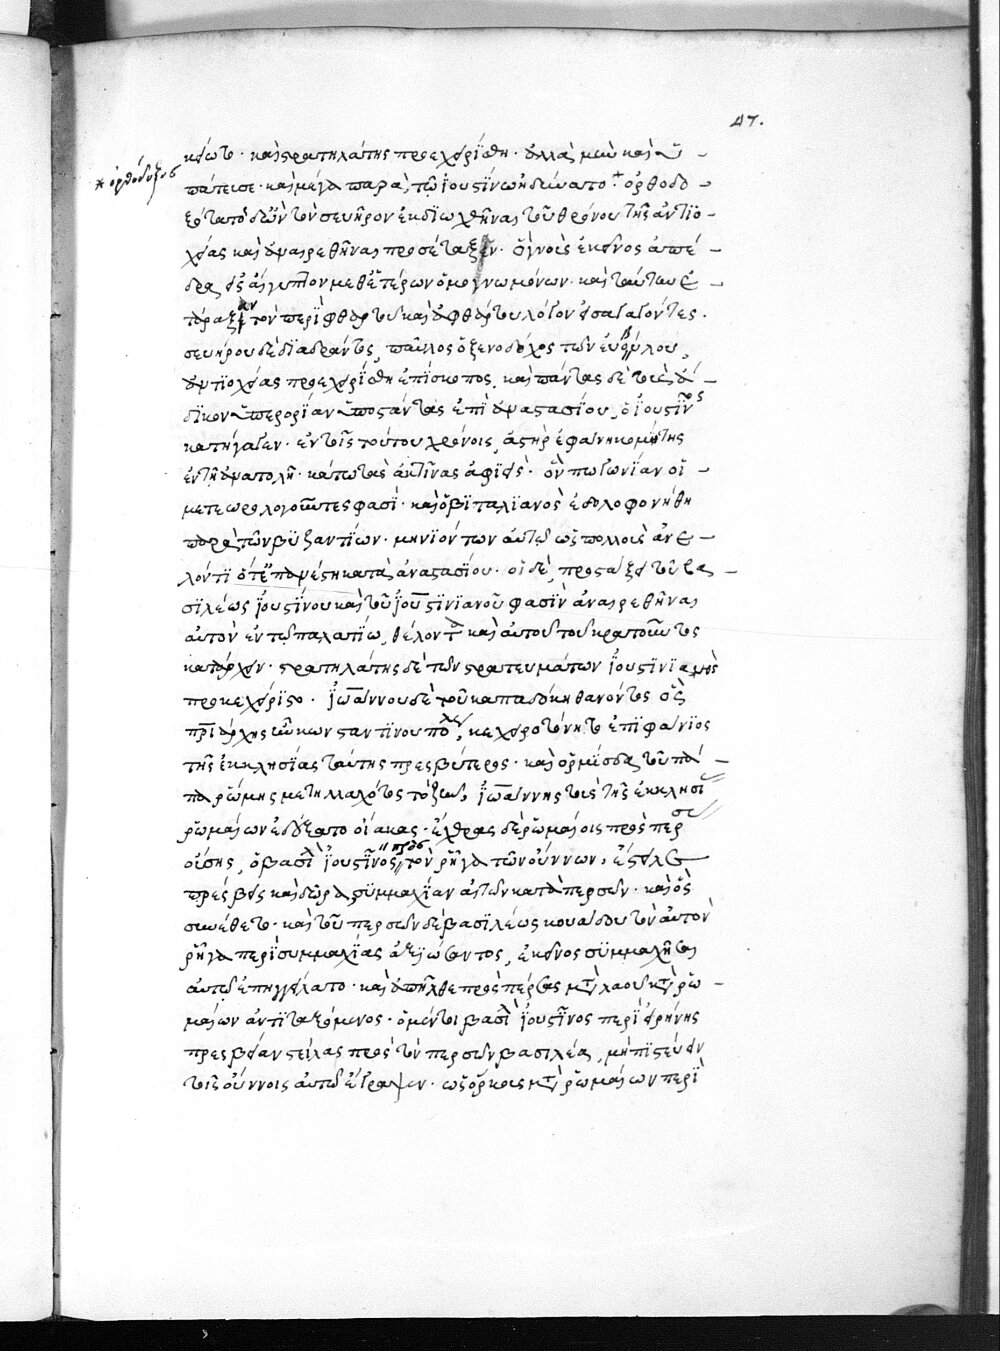 47.
κείωτο· καὶ στρατηλάτης προεχειρίσθη· ἀλλὰ μὲν καὶ ὑ–
* ὀρθόδοξος
πάτευσε· καὶ μέγα παρὰ τῷ ἰουστίνω ἠδύνατο ⁺· ὀρθοδο–
ξότατο δὲ ὢν τὸν σευῆρον ἐκδιωχθῆναι τοῦ θρόνου τῆς ἀντιο–
χείας καὶ ἀναιρεθῆναι προσέταξεν· ὁ γνοὺς ἐκεῖνος ἀπέ–
δρα εἰς αἴγυπτον μεθ' ἑτέρων ὁμογνωμόνων· καὶ ταύτην ἐ–
τάραξαν τὸν περὶ φθαρτοῦ καὶ ἀφθάρτου λόγον εἰσαγαγόντες.
σευήρου δὲ διαδράντος, παῦλος ὁ ξενοδόχος τῶν εὐβούλου,
ἀντιοχείας προεχειρίσθη ἐπίσκοπος, καὶ πάντας δὲ τοὺς ἀ–
δίκον ὑπερορίαν ὑποστάντας ἐπὶ ἀναστασίου, ὁ ἰουστῖνος
κατήγαγεν· ἐν τοῖς τούτου χρόνοις, ἀστὴρ ἐφαίνη κομήτης
ἐν τῇ ἀνατολῇ· κάτω τὰς ἀκτῖνας ἀφιεὶς· ὃν πωγωνίαν οἱ –
μετεωρολογοῦντες φασὶ· καὶ ὁ βιταλιανὸς ἐδολοφονήθη
παρὰ τῶν βυζαντίων· μηνιόντων αὐτῷ ὡς πολλοὺς ἀνε–
λόντι ὅτε ἐπανέστη κατὰ ἀναστασίου· οἱ δὲ, προστάξει τοῦ βα–
σιλέως ἰουστίνου καὶ τοῦ ἰουστινιανοῦ φασὶν ἀναιρεθῆναι
αὐτὸν ἐν τῷ παλατίω, θέλοντα καὶ αὐτοῦ τοῦ κρατοῦντος
κατάρχειν· στρατηλάτης δὲ τῶν στρατευμάτων ἰουστινιανὸς
προκεχείριστο· ἰωάννου δὲ τοῦ καπαδόκη θανόντος ὃς
πριάρχης ὢν κωνσταντίνου πόλεως, κεχειροτόνητο ἐπιφάνιος
τῆς ἐκκλησίας ταύτης πρεσβύτερος· καὶ ὁρμίσδα τοῦ πά–
πα ῥώμης μετηλλαχότος τὸ ζῆν, ἰωάννης τοὺς τῆς ἐκκλησίας
ῥωμαίων ἐδέξατο οἴακας· ἔχθρας δὲ ῥωμαίοις πρὸς πέρσας
οὔσης, ὁ βασιλεὺς ἰουστῖνος πρὸς τὸν ῥῆγα τῶν οὔννων, ἔστειλε
πρέσβεις καὶ δῶρα, συμμαχίαν αἰτῶν κατὰ περσῶν· καὶ ὃς
συνέθετο· καὶ τοῦ περσῶν δὲ βασιλέως κουάδου τὸν αὐτὸν
ῥῆγα περὶ συμμαχίας ἀξιώσαντος, ἐκεῖνος συμμαχῆσαι
αὐτῷ ἐπηγγείλατο· καὶ ἀπῆλθε πρὸς πέρσας μετὰ λαοῦ κατὰ ῥω–
μαίων ἀντιταξόμενος· ὁ μέντοι βασιλεὺς ἰουστῖνος περὶ εἰρήνης
πρεσβείαν στείλας πρὸς τὸν περσῶν βασιλέα, μὴ πιστεύειν
τοῖς οὔννοις αὐτῷ ἔγραψεν· ὡς ὅρκοις μετὰ ῥωμαίων περὶ